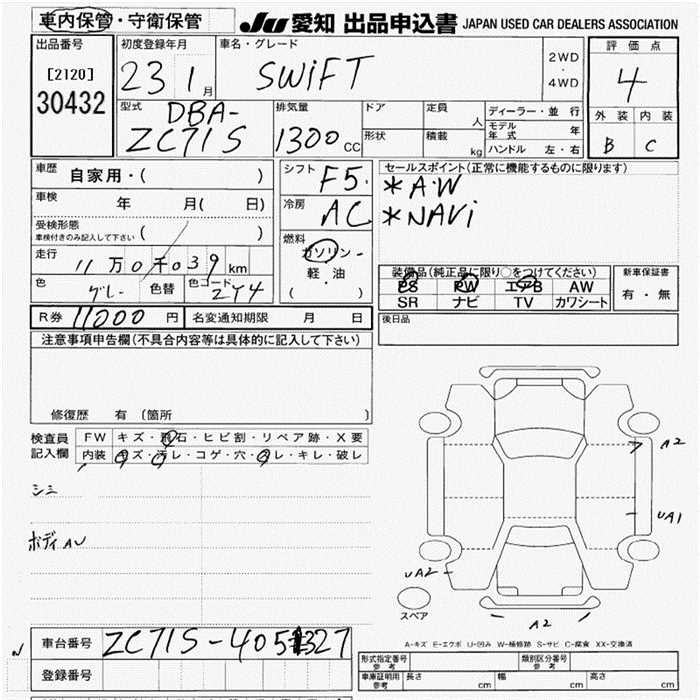 車内保管・守衛保管
JU 愛知 出品申込書 JAPAN USED CAR DEALERS ASSOCIATION
出品番号
[2120]
30432
初度登録年月
23 1月
車名・グレード
SWIFT
2WD
・
4WD
評価点
4
外装 内装
B C
型式
DBA-
ZC71S
排気量
1300 CC
ドア
形状
定員 人
積載 kg
ディーラー・並行
モデル年式 年
ハンドル 左・右
車歴
自家用・( )
車検
年 月( 日)
受検形態
車検付きのみ記入して下さい ( )
走行
11万0千039km
色
グレー
色替
色コード
ZY4
シフト
F5.
冷房
AC
燃料
ガソリン
軽・油
( )
セールスポイント(正常に機能するものに限ります)
*A.W
*NAVi
装備品(純正品に限り○をつけてください)
PS PW エアB AW
SR ナビ TV カワシート
新車保証書
有・無
R券 11000 円
名変通知期限 月 日
後日品
注意事項申告欄(不具合内容等は具体的に記入して下さい)
修復歴 有 〔箇所 〕
検査員
記入欄
FW キズ・飛石・ヒビ割・リペア跡・X要
内装 キズ・汚レ・コゲ・穴・スレ・キレ・破レ
シミ
ボディAU
A2
UA1
UA2
A2
スペア
A-キズ E-エクボ U-凹み W-補修跡 S-サビ C-腐食 XX-交換済
車台番号
ZC71S-405327
登録番号
形式指定番号
参考
類別区分番号
参考
車庫証明用
参考
長さ cm
幅 cm
高さ cm